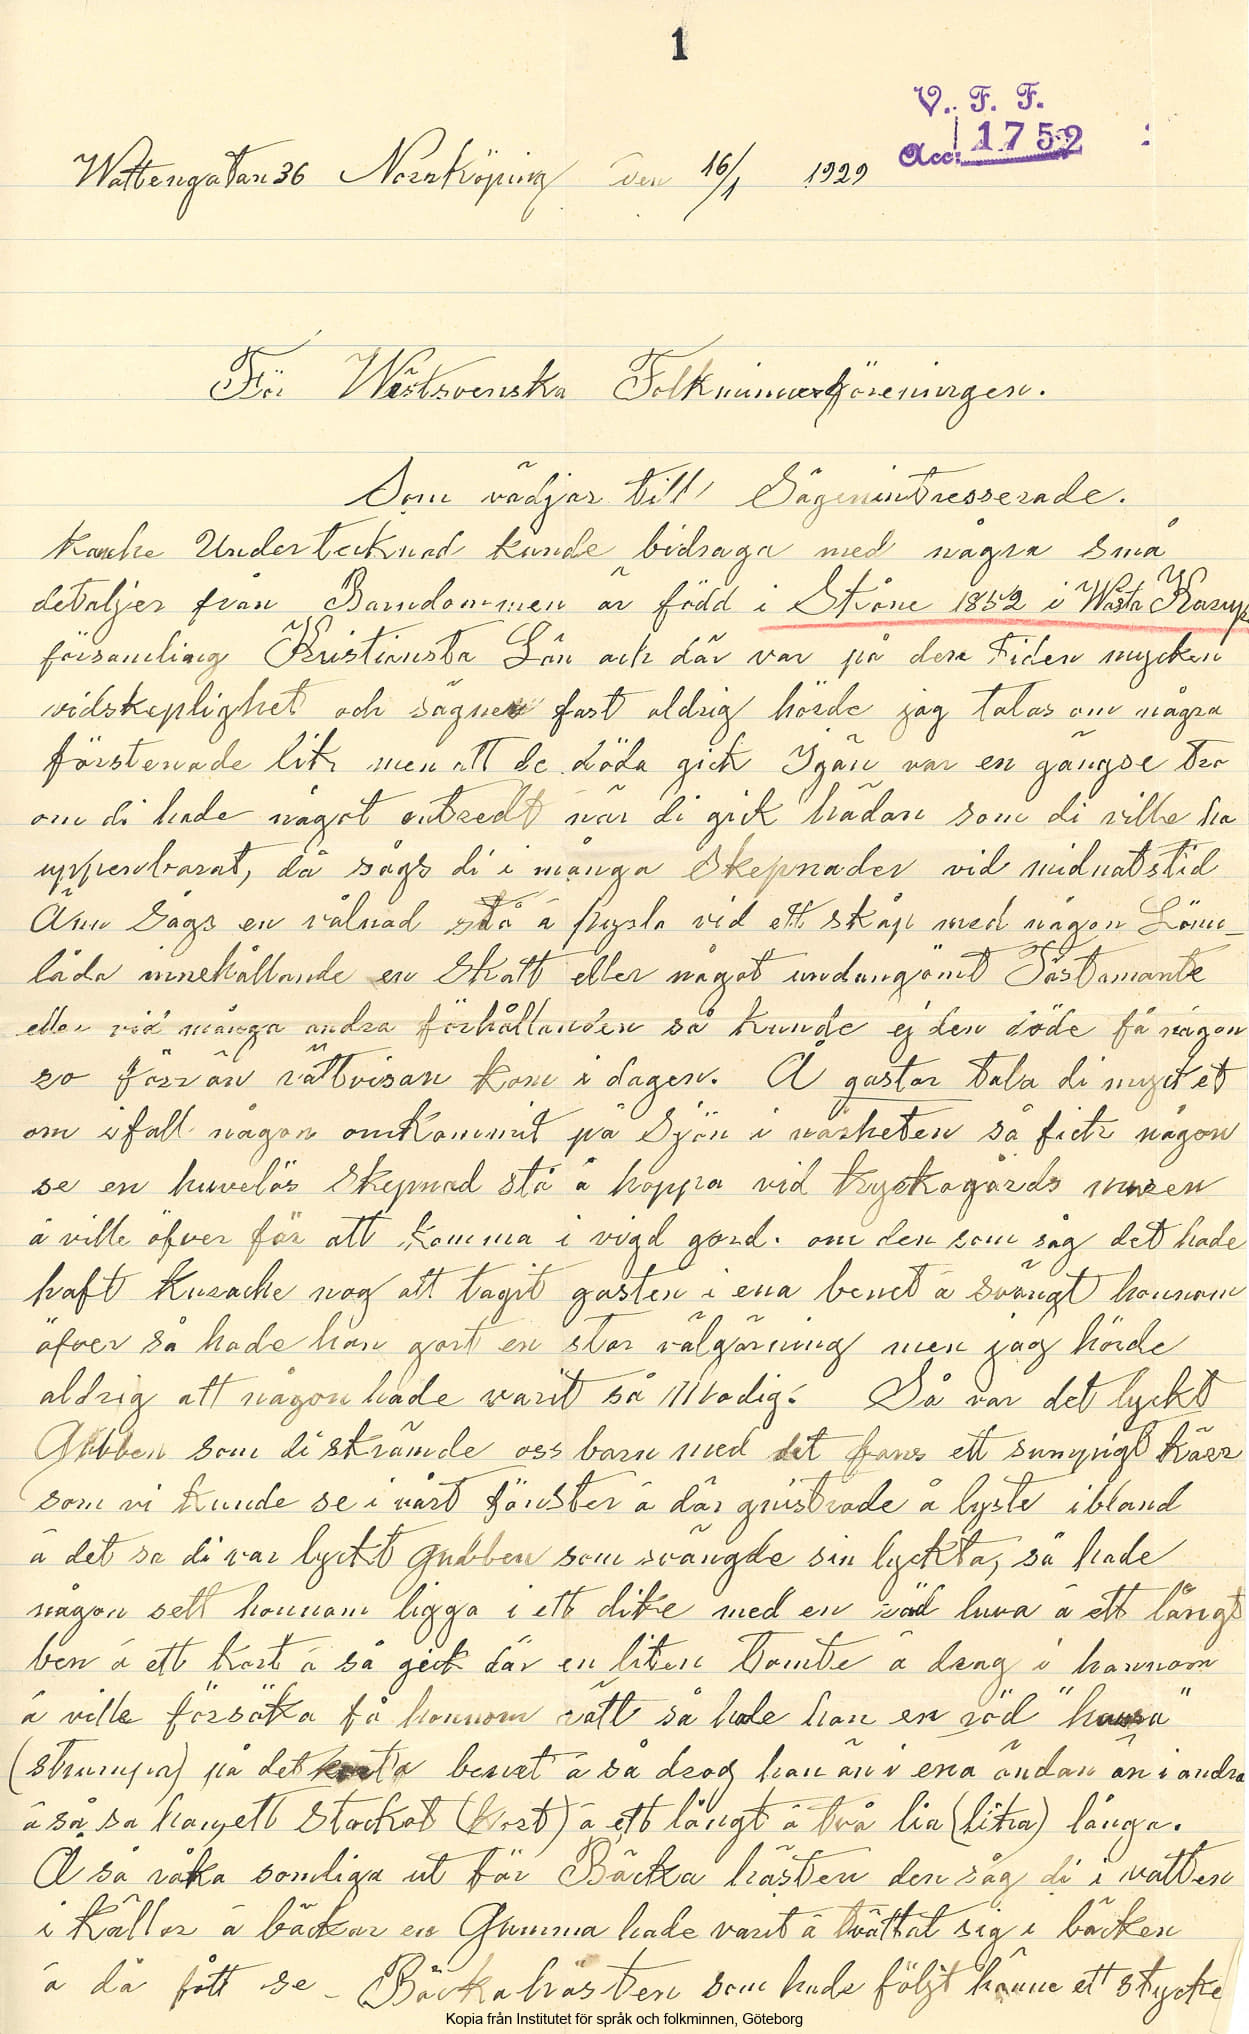 1
V. F. F.
Acc. 1752
Wattengatan 36 Norrköping den 16/1 1929
För Wästsvenska Folkminnesföreningen.
Som vädjar till Sägenintresserade.
kanhe Undertecknad kunde bidraga med några små
detaljer från Barndommen är född i Skåne 1852 i Wästa Karups
församling Kristiansta Län och där var på den tiden mycken
vidskeplighet och sägner fast aldrig hörde jag talas om några
förstenade lik men att de döda gick Igän var en gängse tro
om di hade något outredt när di gick hädan som di ville ha
uppenbarat, då sågs di i många Skepnader vid midnatstid
Änn Sågs en vålnad stå å pyssla vid ett skåp med någon Lönn-
låda innehållande en Skatt eller något undangömt Tästamante
eller vid många andra förhållanden så kunde ej den döde få någon
ro förr än rättvisan kom i dagen. Å gastar tala di mycket
om ifall någon omkommit på Sjön i närheten så fick någon
se en huvelös Skepnad stå å hoppa vid kyrkogårds muren
å ville öfver för att komma i vigd gord. om den som såg det hade
haft Kurache nog att tagit gasten i ena benet å svängt honnom
öfver så hade han gort en stor välgärning men jag hörde
aldrig att någon hade varit så Modig. Så var det lyckt
Gubben som di skrämde oss barn med det fans ett sumpigt kärr
som vi kunde se i vårt fönster å där gnistrade å lyste ibland
å det sa di var lyckt gubben som svängde sin lyckta, så hade
någon sett honnom ligga i ett dike med en röd luva å ett långt
ben å ett kort å så gick där en liten tomte å drog i honnom
å ville försöka få honnom rätt så hade han en röd "hausa"
(strumpa) på det korta benet å så drog han än i ena ändan än i andra
å så sa han, ett Stackot (kort) å ett långt å två lia (lika) långa.
Å så råka somliga ut för Bäcka hästen den såg di i vatten
i Källor å bäckar en Gumma hade varit å tvättat sig i bäcken
å då fått se - Bäckahästen som hade följt hänne ett stycke
Kopia från Institutet för språk och folkminnen, Göteborg